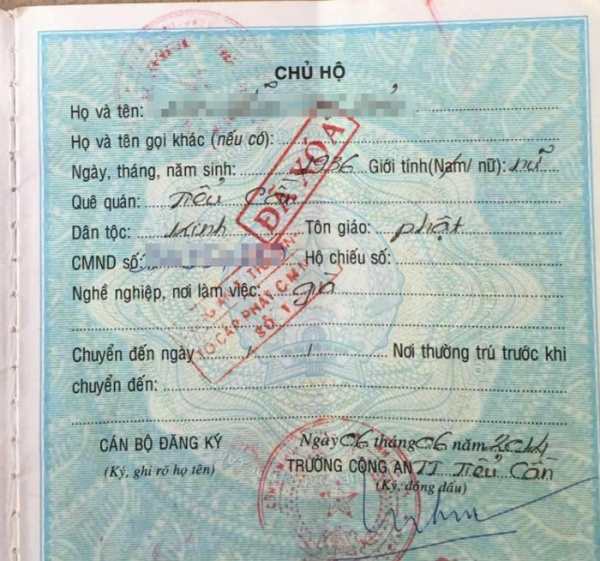 CHỦ HỘ
Họ và tên:
Họ và tên gọi khác (nếu có):
ĐÃ XÓA
Ngày, tháng, năm sinh: 1936 Giới tính(Nam/ nữ): nữ
Quê quán: Tiểu Cần
Dân tộc: Kinh Tôn giáo: phật
CMND số: Hộ chiếu số:
Nghề nghiệp, nơi làm việc: già
TỔ CẤP PHÁT C.M
SỐ 1
Chuyển đến ngày / / Nơi thường trú trước khi
chuyển đến:
CÁN BỘ ĐĂNG KÝ
(Ký, ghi rõ họ tên)
Ngày 06 tháng 06 năm 2014
TRƯỞNG CÔNG AN TT Tiểu Cần
(Ký, đóng dấu)